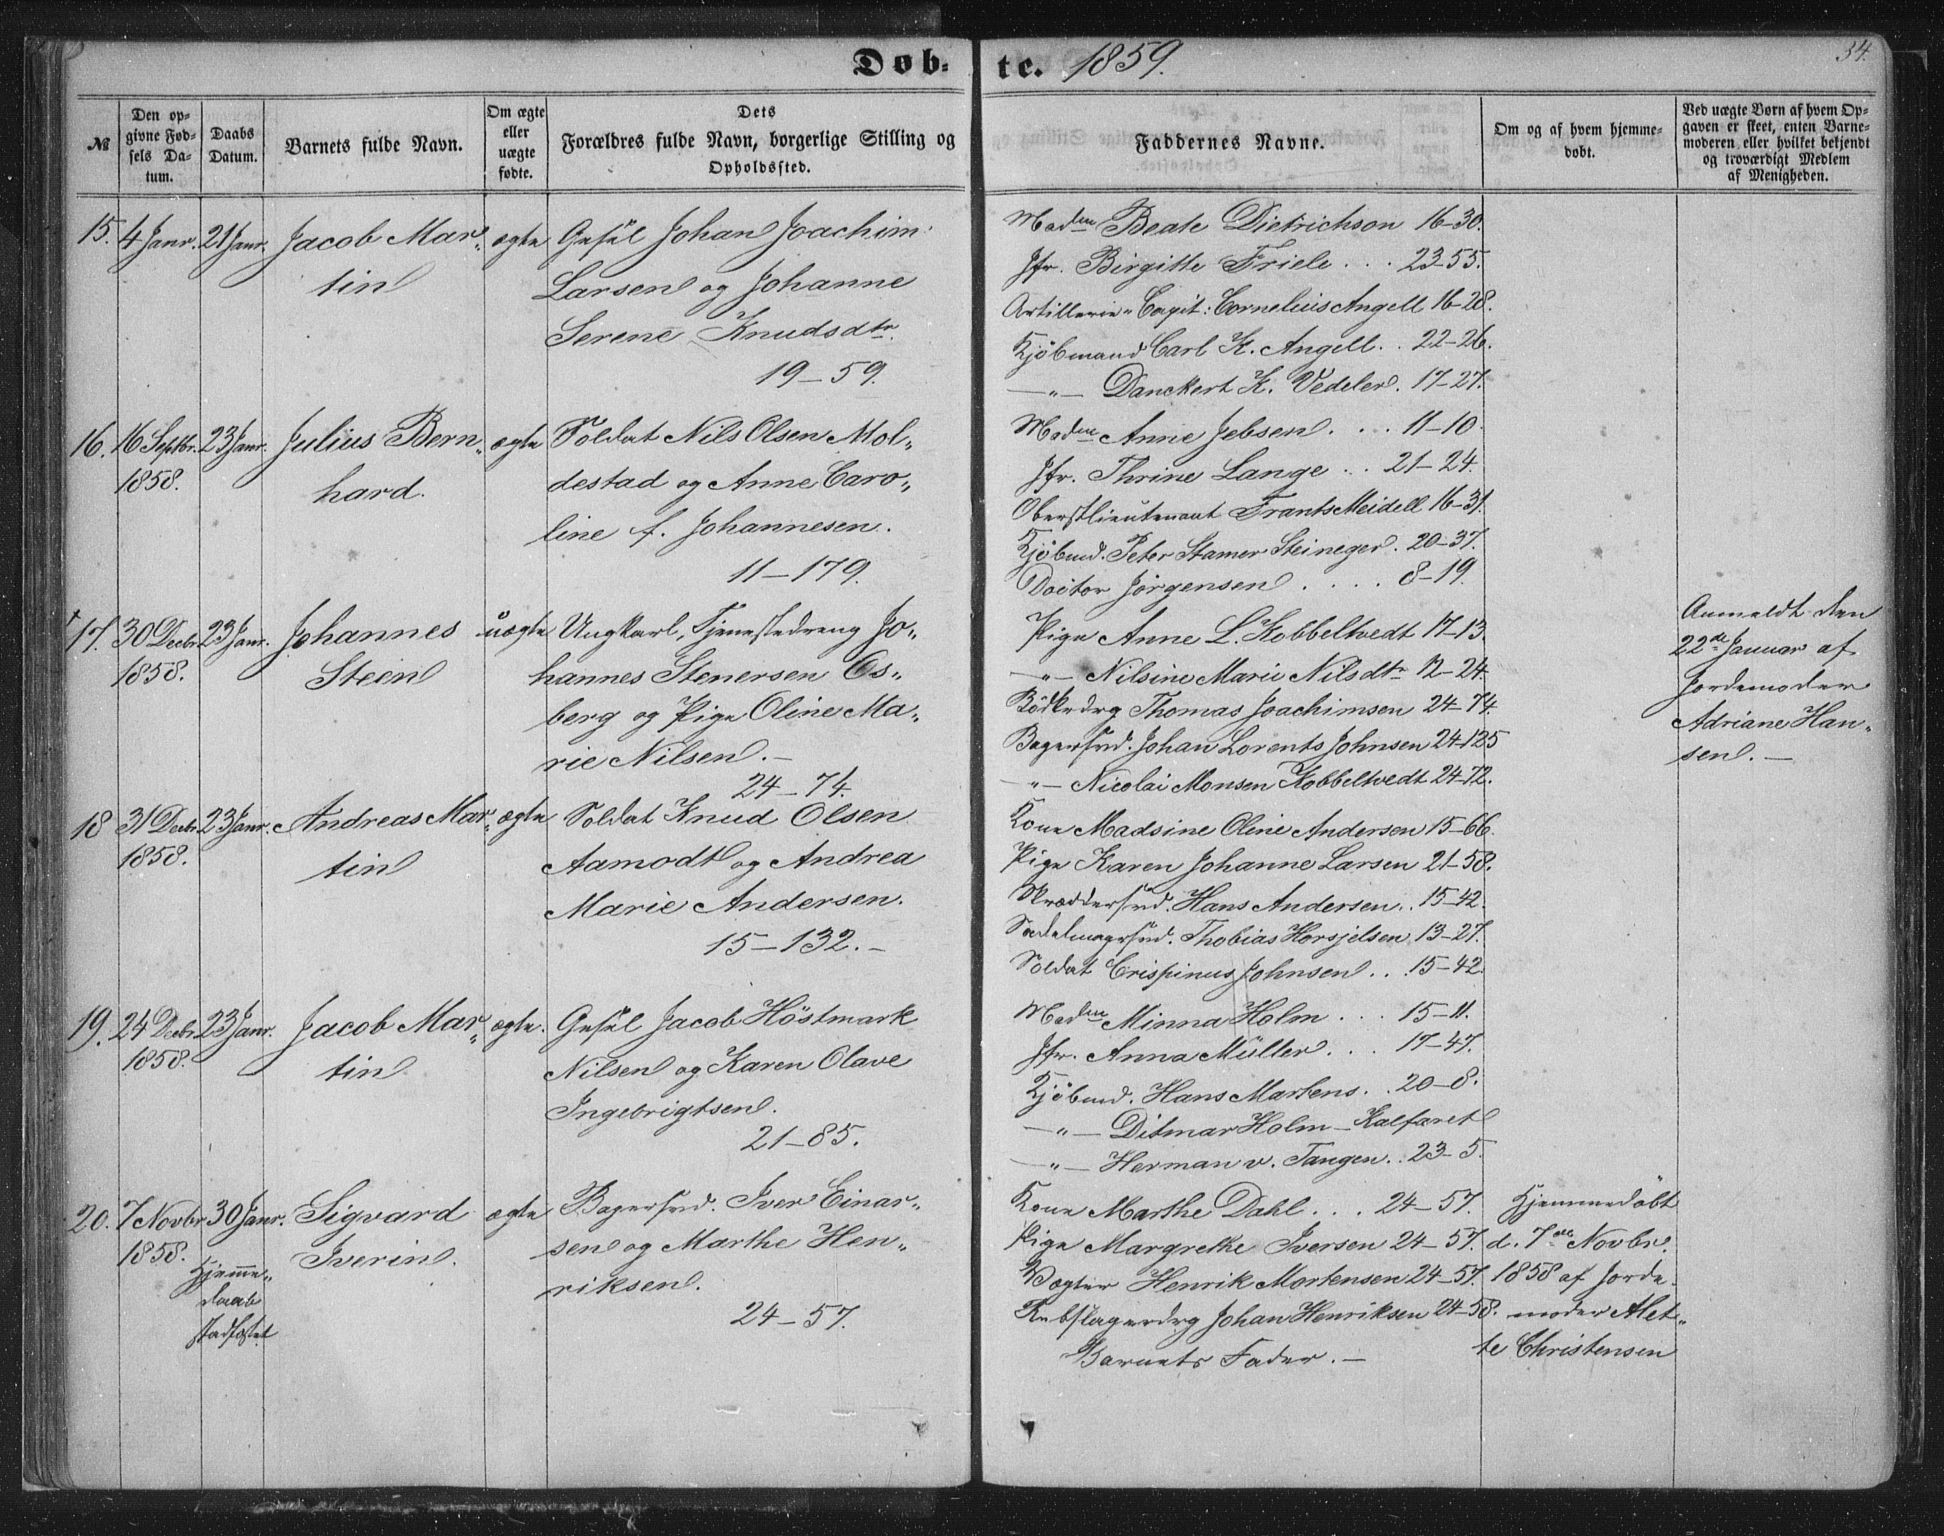 Døb-
te. 1859.
34.
№
Den op-
givne Fød-
sels Da-
tum.
Daabs
Datum.
Barnets fulde Navn.
Om ægte
eller
uægte
fødte.
Dets
Forældres fulde Navn, borgerlige Stilling og
Opholdssted.
Faddernes Navne.
Om og af hvem hjemme-
døbt.
Ved uægte Børn af hvem Op-
gaven er skeet, enten Barne-
moderen eller hvilket bekjendt
og troværdigt Medlem
af Menigheden.
15. 4 Janr. 21 Janr. Jacob Mar„ ægte Gesel Johan Joachim
tin Larsen og Johanne
Serene Knudsdtr.
19-59.
Madm Beate Dietrichson 16-30.
Jfr. Birgitte Friele . . . 23-55.
Artillerie-Capit: Cornelius Angell 16-28.
Kjöbmand Carl K. Angell . . 22-26.
—„— Danckert K. Vedeler. 17-27.
16. 16 Septbr. 23 Janr. Julius Bern„ ægte Soldat Nils Olsen Mol„
1858. hard. destad og Anne Caro„
line f. Johannesen.
11-179.
Madm Anne Jebsen . . . 11-10.
Jfr. Thrine Lange . . 21-24.
Oberstlieutenant Frants Meidell 16-31.
Kjöbmd. Peter Stamer Steineger. 20-37.
Doctor Jørgensen . . . . 8-19.
17. 30 Decbr. 23 Janr. Johannes uægte Ungkarl, Tjenestedreng Jo„
1858. Steen hannes Stenersen Os„
berg og Pige Oline Ma„
rie Nilsen. -
24-74.
Pige Anne L. Kobbeltvedt 17-13.
—„— Nilsine Marie Nilsdtr 12-24.
Bödkerdrg Thomas Joachimsen 24-74.
Bagersvd. Johan Lorents Johnsen 24-125
—„— Nicolai Monsen Kobbeltvedt 24-72.
Anmeldt den
22de Januar af
Jordemoder
Adriane Han„
sen. —
18 31 Decbr. 23 Janr. Andreas Mar„ ægte Soldat Knud Olsen
1858. tin Aamodt og Andrea
Marie Andersen.
15-132. -
Kone Madsine Oline Andersen 15-66.
Pige Karen Johanne Larsen 21-58.
Skræddersvd. Hans Andersen . . 15-42.
Sadelmagersvd. Thobias Horsjelsen. 13-27.
Soldat Crispinus Johnsen . . 15-42.
19. 24 Decbr. 23 Janr. Jacob Mar„ ægte. Gesel Jacob Höstmark
1858. tin Nilsen og Karen Olave
Ingebrigtsen.
21-85.
Madm Minna Holm . . . 15-11.
Jfr. Anna Müller . . . 17-47.
Kjöbmd. Hans Martens. . 20-8.
—„— Ditmar Holm - Kalfaret
—„— Herman v. Tangen. . 23-5.
20. 7 Novbr 30 Janr. Sigvard ægte Bagersvd. Iver Einar„
1858. Iverin. sen og Marthe Hen„
Hjemme„ riksen.
daab 24-57.
stadfæstet
Kone Marthe Dahl . . . 24-57.
Pige Margrethe Iversen 24-57.
Vægter Henrik Mortensen 24-57.
Rebslagerdrg Johan Henriksen 24-58.
Barnets Fader. —
Hjemmedöbt
d. 7de Novbr.
1858 af Jorde-
moder Alet„
te Christensen